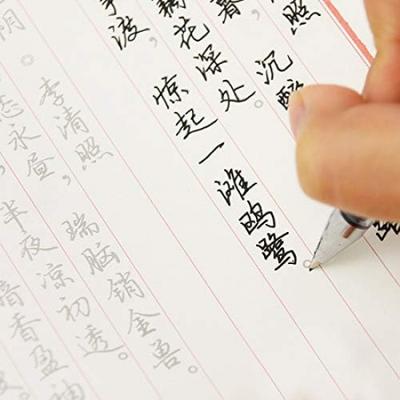 照
暮 沉醉
藕花深处。
渡, 惊起一滩鸥鹭
阴 李清照
永昼, 瑞脑销金兽。
半夜凉初透。
暗香盈袖